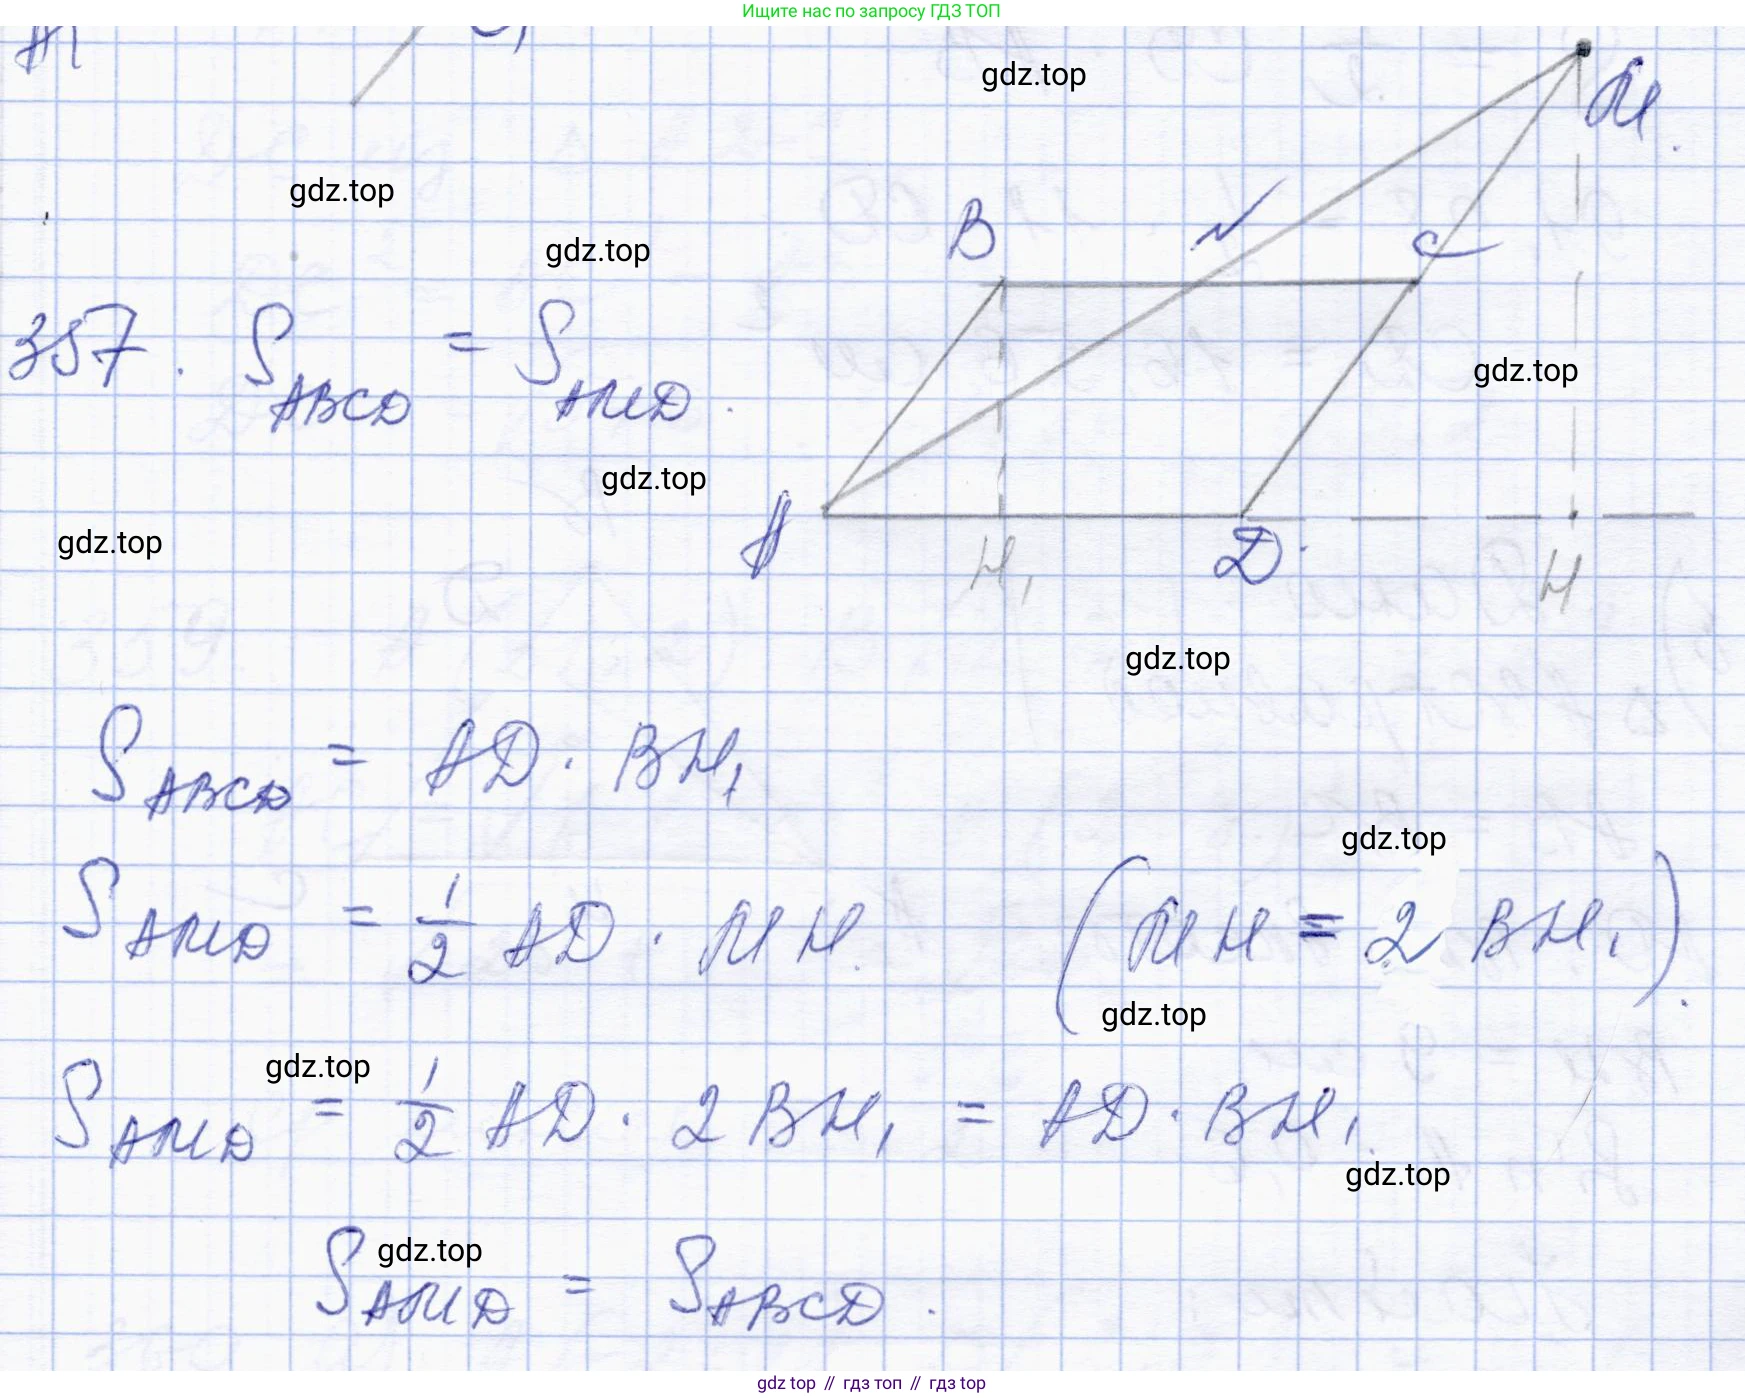 Ищите нас по запросу ГДЗ ТОП
A1 C1
gdz.top
M
gdz.top
B N C
gdz.top
357. S ABCD = S AMD.
gdz.top
gdz.top
A H1 D H
gdz.top
gdz.top
S ABCD = AD · BH1
gdz.top
S AMD = 1/2 AD · MH. (MH = 2 BH1).
gdz.top
gdz.top
S AMD = 1/2 AD · 2 BH1 = AD · BH1.
gdz.top
gdz.top
S AMD = S ABCD.
gdz top // гдз топ // гдз top